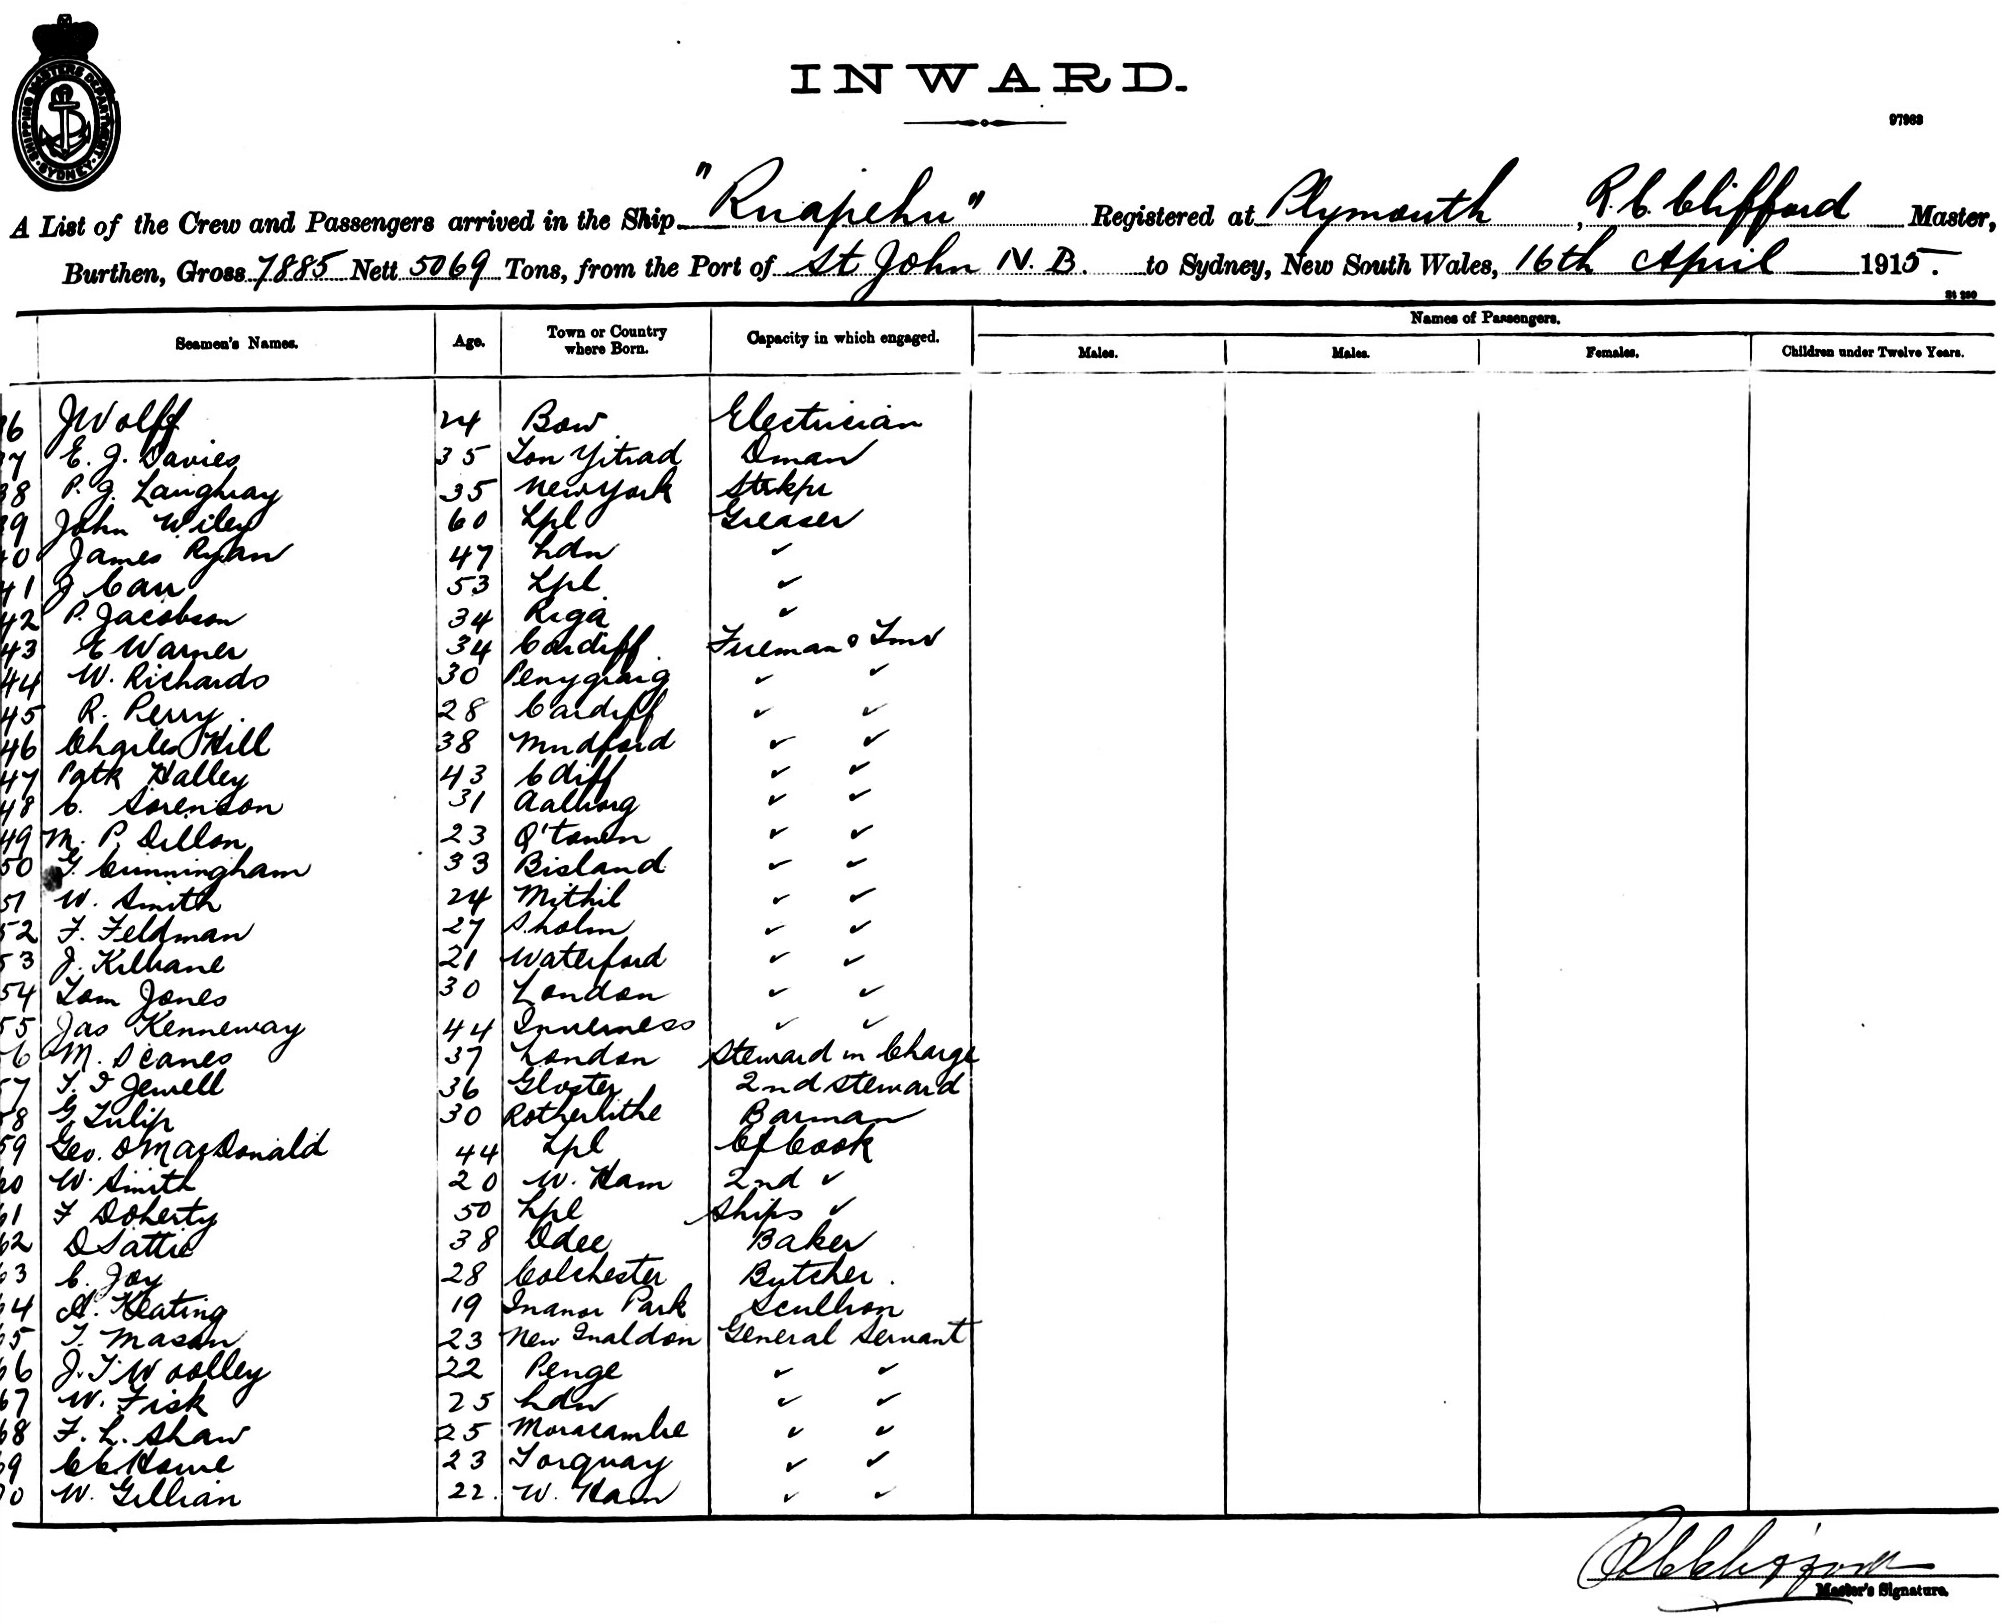 SHIPPING MASTERS DEPARTMENT SYDNEY
INWARD.
97963
A List of the Crew and Passengers arrived in the Ship "Ruapehu" Registered at Plymouth, R.C. Clifford Master,
Burthen, Gross 7885 Nett 5069 Tons, from the Port of St John N.B. to Sydney, New South Wales, 16th April 1915.
Seamen's Names. Age. Town or Country where Born. Capacity in which engaged. Names of Passengers.
Males. Males. Females. Children under Twelve Years.
36 J Wolff 24 Bow Electrician
37 E. J. Davies 35 Ton Yitrad Dman
38 P. J. Langhray 35 New York Strkpr
39 John Wiley 60 Lpl Greaser
40 James Ryan 47 Ldn ✓
41 J Carr 53 Lpl ✓
42 P. Jacobson 34 Riga ✓
43 E Warner 34 Cardiff Fireman & Tmr
44 W. Richards 30 Penygraig ✓ ✓
45 R. Perry. 28 Cardiff ✓ ✓
46 Charles Hill 38 Mudford ✓ ✓
47 Patk Halley 43 Cdiff ✓ ✓
48 C. Sorenson 31 Aalborg ✓ ✓
49 M. P. Dillon 23 Q'town ✓ ✓
50 G. Cunningham 33 Bisland ✓ ✓
51 W. Smith 24 Mithil ✓ ✓
52 F. Feldman 27 S.holm ✓ ✓
53 J. Kilbane 21 Waterford ✓ ✓
54 Tom Jones 30 London ✓ ✓
55 Jas Kenneway 44 Inverness ✓ ✓
56 M. Deanes 37 London Steward in Charge
57 T. I Jewell 36 Gloster 2nd Steward
58 G Tulip 30 Rotherhithe Barman
59 Geo. D MacDonald 44 Lpl Cf Cook
60 W. Smith 20 W. Ham 2nd ✓
61 F Doherty 50 Lpl Ships ✓
62 D Sattie 38 Ddee Baker
63 C. Joy 28 Colchester Butcher.
64 A. Keating 19 Manor Park Scullion
65 T. Mason 23 New Maldon General Servant
66 J. T. Woolley 22 Penge ✓ ✓
67 W. Fisk 25 Ldn ✓ ✓
68 F. L. Shaw 25 Moracambe ✓ ✓
69 C C Howe 23 Torquay ✓ ✓
70 W. Gillian 22. W. Ham ✓ ✓
R C Clifford
Master's Signature.